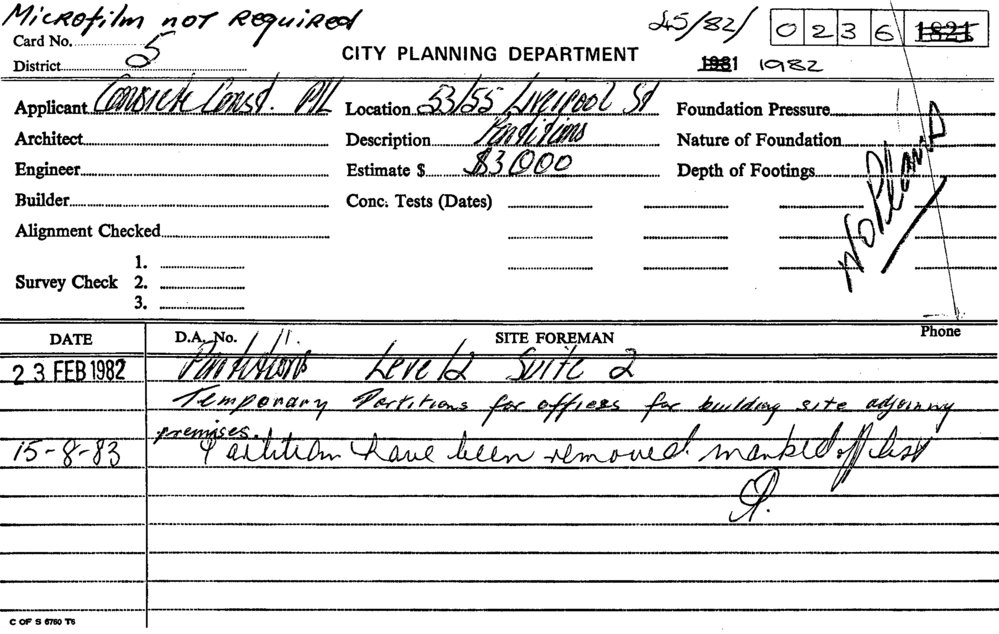 Microfilm not Required
45/82/
0236 1821
Card No.
District 5
CITY PLANNING DEPARTMENT
1981 1982
Applicant Concrete Const. P/L
Location 53/55 Liverpool St
Foundation Pressure
Architect
Description Partitions
Nature of Foundation
Engineer
Estimate $ $3000
Depth of Footings
Builder
Conc. Tests (Dates)
No Plans
Alignment Checked
Survey Check 1.
2.
3.
DATE D.A. No. SITE FOREMAN Phone
23 FEB 1982 Partitions Level 2 Suite 2
Temporary Partitions for offices for building site adjoining
premises.
15-8-83 Partition have been removed. marked off list